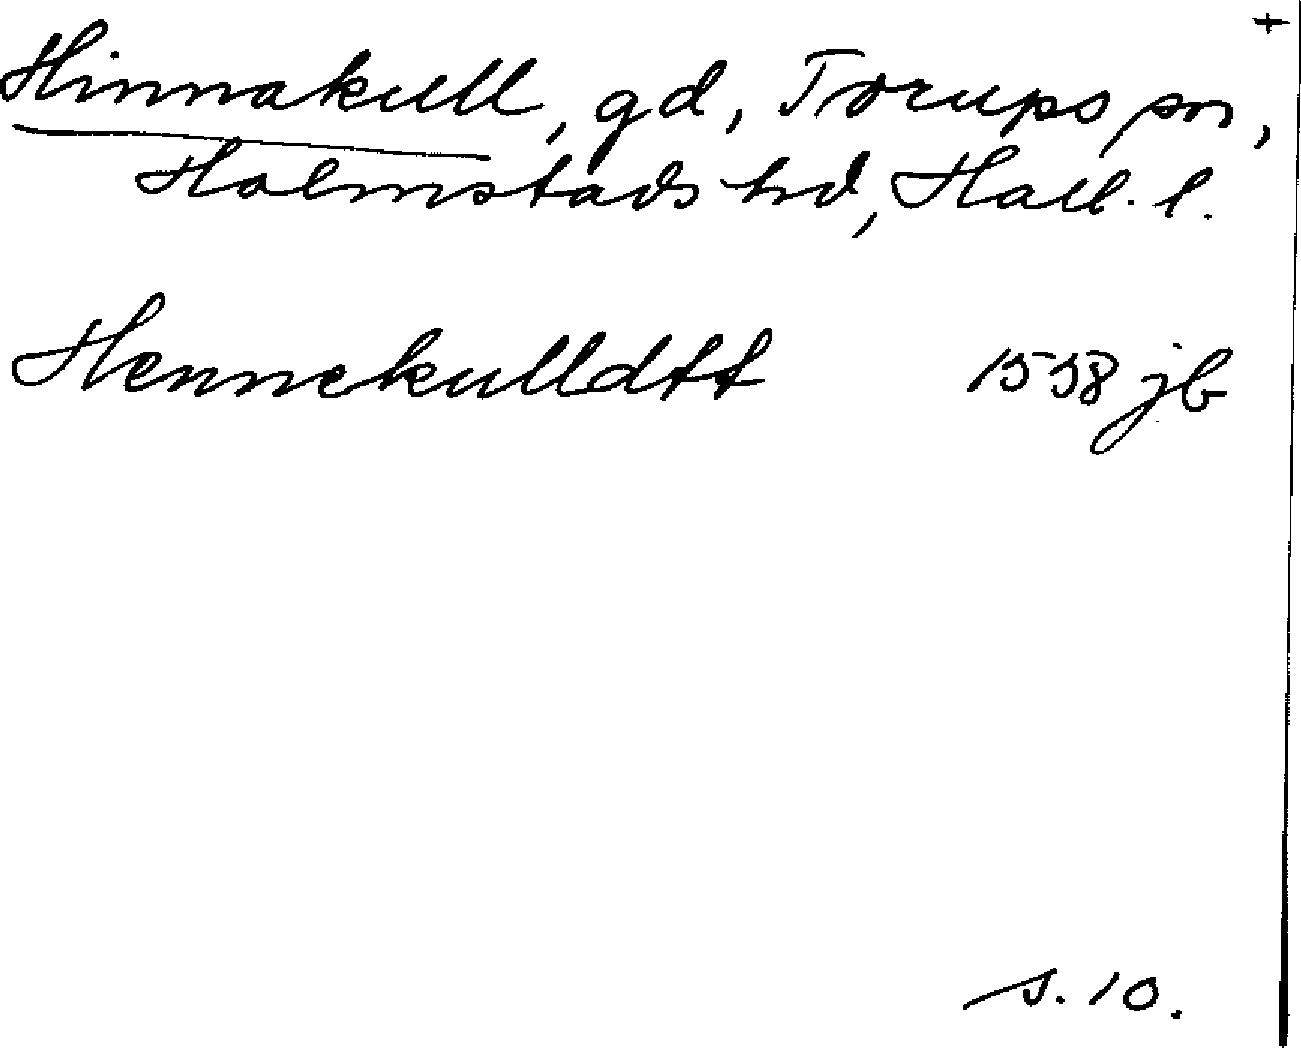 +
Hinnakull, gd, Torups sn,
Halmstads hd, Hall. l.
Hennekulldtt 1558 jb
s. 10.